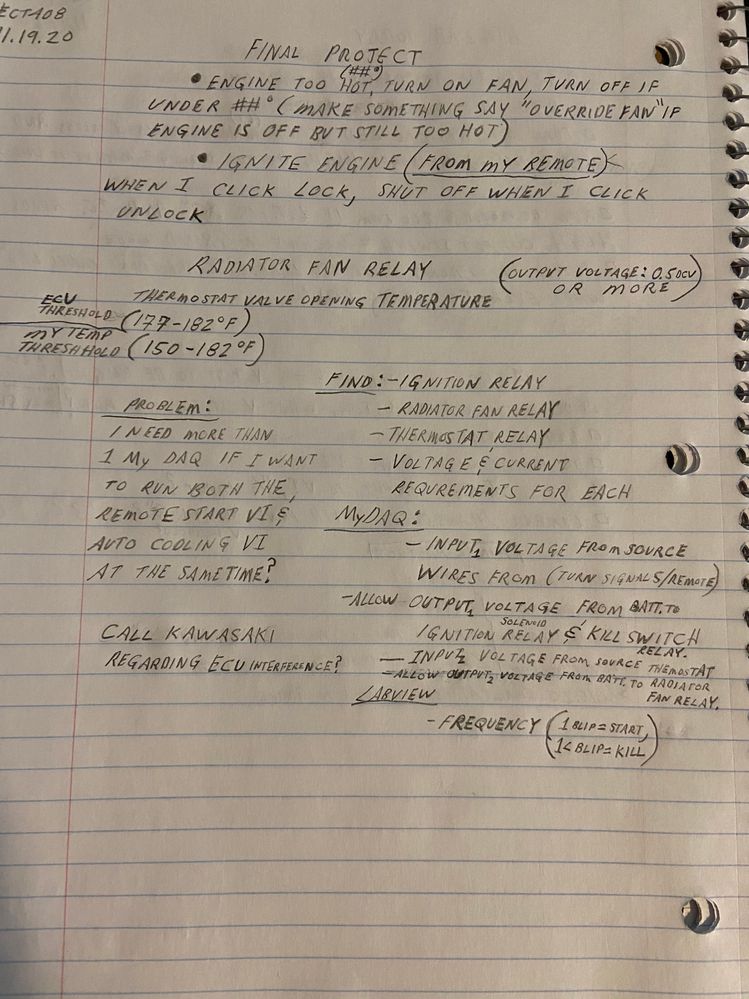 ECT408
1.19.20
FINAL PROJECT
(##°)
• ENGINE TOO HOT, TURN ON FAN, TURN OFF IF
UNDER ##° (MAKE SOMETHING SAY "OVERRIDE FAN" IF
ENGINE IS OFF BUT STILL TOO HOT)
• IGNITE ENGINE (FROM MY REMOTE)
WHEN I CLICK LOCK, SHUT OFF WHEN I CLICK
UNLOCK
RADIATOR FAN RELAY (OUTPUT VOLTAGE: 0.5DCV
OR MORE)
THERMOSTAT VALVE OPENING TEMPERATURE
ECU
THRESHOLD (177-182°F)
MY TEMP
THRESHHOLD (150-182°F)
FIND: - IGNITION RELAY
- RADIATOR FAN RELAY
- THERMOSTAT RELAY
- VOLTAGE & CURRENT
REQUREMENTS FOR EACH
PROBLEM:
I NEED MORE THAN
1 MY DAQ IF I WANT
TO RUN BOTH THE,
REMOTE START VI &
AUTO COOLING VI
AT THE SAMETIME?
CALL KAWASAKI
REGARDING ECU INTERFERENCE?
MYDAQ:
- INPUT1 VOLTAGE FROM SOURCE
WIRES FROM (TURN SIGNALS/REMOTE)
- ALLOW OUTPUT1 VOLTAGE FROM BATT. TO
SOLENOID
IGNITION RELAY & KILL SWITCH
RELAY.
- INPUT2 VOLTAGE FROM SOURCE THEMOSTAT
- ALLOW OUTPUT2 VOLTAGE FROM BATT. TO RADIATOR
FAN RELAY.
LABVIEW
- FREQUENCY (1 BLIP = START,
1< BLIP = KILL)